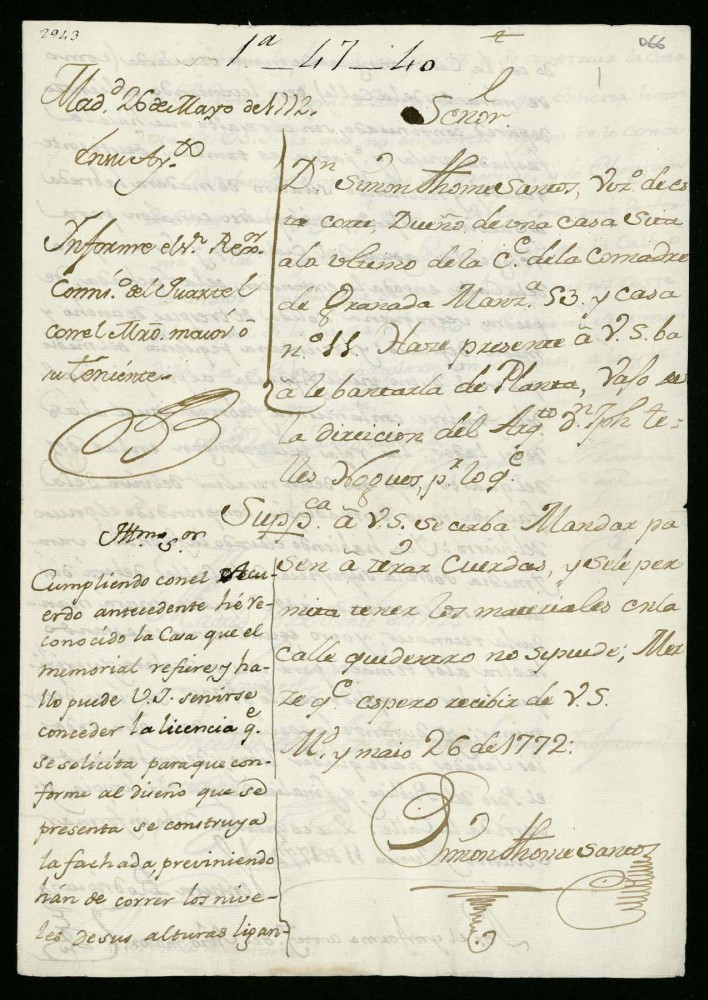 2943
066
1ª - 47 - 40
Mad.d 26 de Mayo de 1772.
En su Ay.to
Informe el S.r Rexor
Comis.o del Quartel
con el Mro. maior ô
su teniente.
Señor
D.n Simon thome Santos, Vez.o de es
ta corte, Dueño, de una casa Sita
a lo ultimo de la C.e de la Comadre
de Granada Manz.a 53. y casa
n.o 11. Haze presente â V. S. ba
a lebantarla de Planta, vajo
la direicion del Arq.to d.n Jph te=
lles Nogues, p.r lo q.e
Supp.ca â V. S. se cirba Mandar pa
sen â tirar Cuerdas, y se le per
mita tener los materiales en la
calle
no
Mer
ze q.e espero recibir de V. S.
M.d y maio 26 de 1772:
Simon thome Santos
Illmo. Sor.
Cumpliendo con el Acu-
erdo antecedente hè re-
conocido la Casa que el
memorial refiere, y ha-
llo puede V. I. servirse
conceder la licencia q.e
se solicita para que con-
forme al diseño que se
presenta se construya
la fachada previniendo
hán de correr los nive-
les de sus alturas ligan-